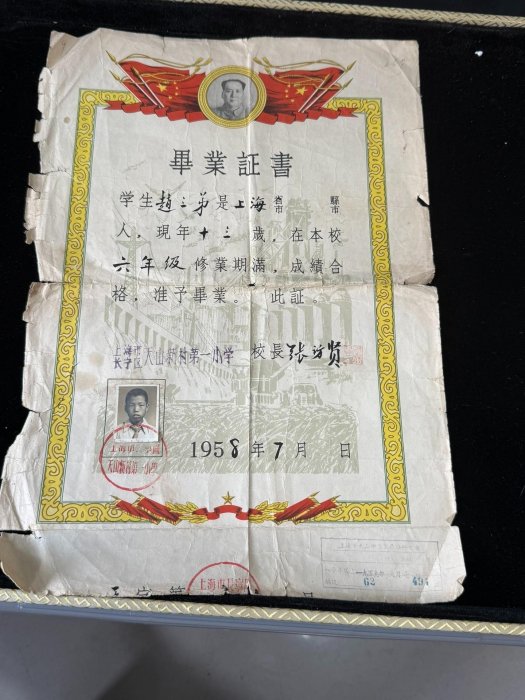 畢業証書
学生趙三弟是上海省市 縣市
人，現年十三歲，在本校
六年級修業期滿，成績合
格，准予畢業。 此証。
上海市長宁区天山新村第一小学 校長張芳贤
上海市長寧區
天山新村第一小學
1958年7月 日
字第
上海市長寧
62 494